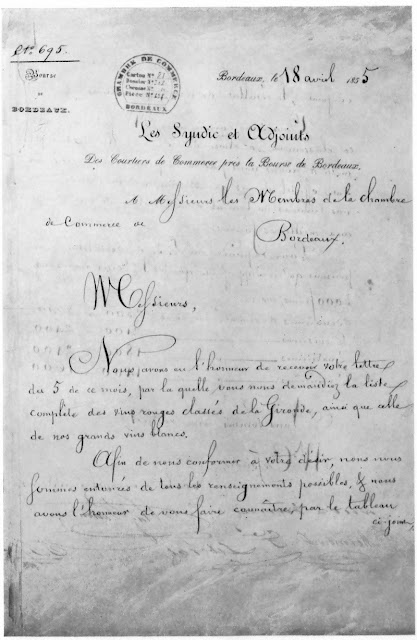 N.º 695.
Bourse
DE
BORDEAUX.
CHAMBRE DE COMMERCE
Carton Nº
Dossier Nº
Pièce Nº
BORDEAUX
Bordeaux, le 18 avril 1855
Les Syndic et Adjoints
Des Courtiers de Commerce près la Bourse de Bordeaux.
A Messieurs les Membres de la chambre
de Commerce de
Bordeaux.
Messieurs,
Nous avons eu l'honneur de recevoir votre lettre
du 5 de ce mois, par la quelle vous nous demandiez la liste
complète des vins rouges classés de la Gironde, ainsi que celle
de nos grands vins blancs.
Afin de nous conformer à votre désir, nous nous
sommes entourés de tous les renseignements possibles, & nous
avons l'honneur de vous faire connaître, par le tableau
ci-joint,